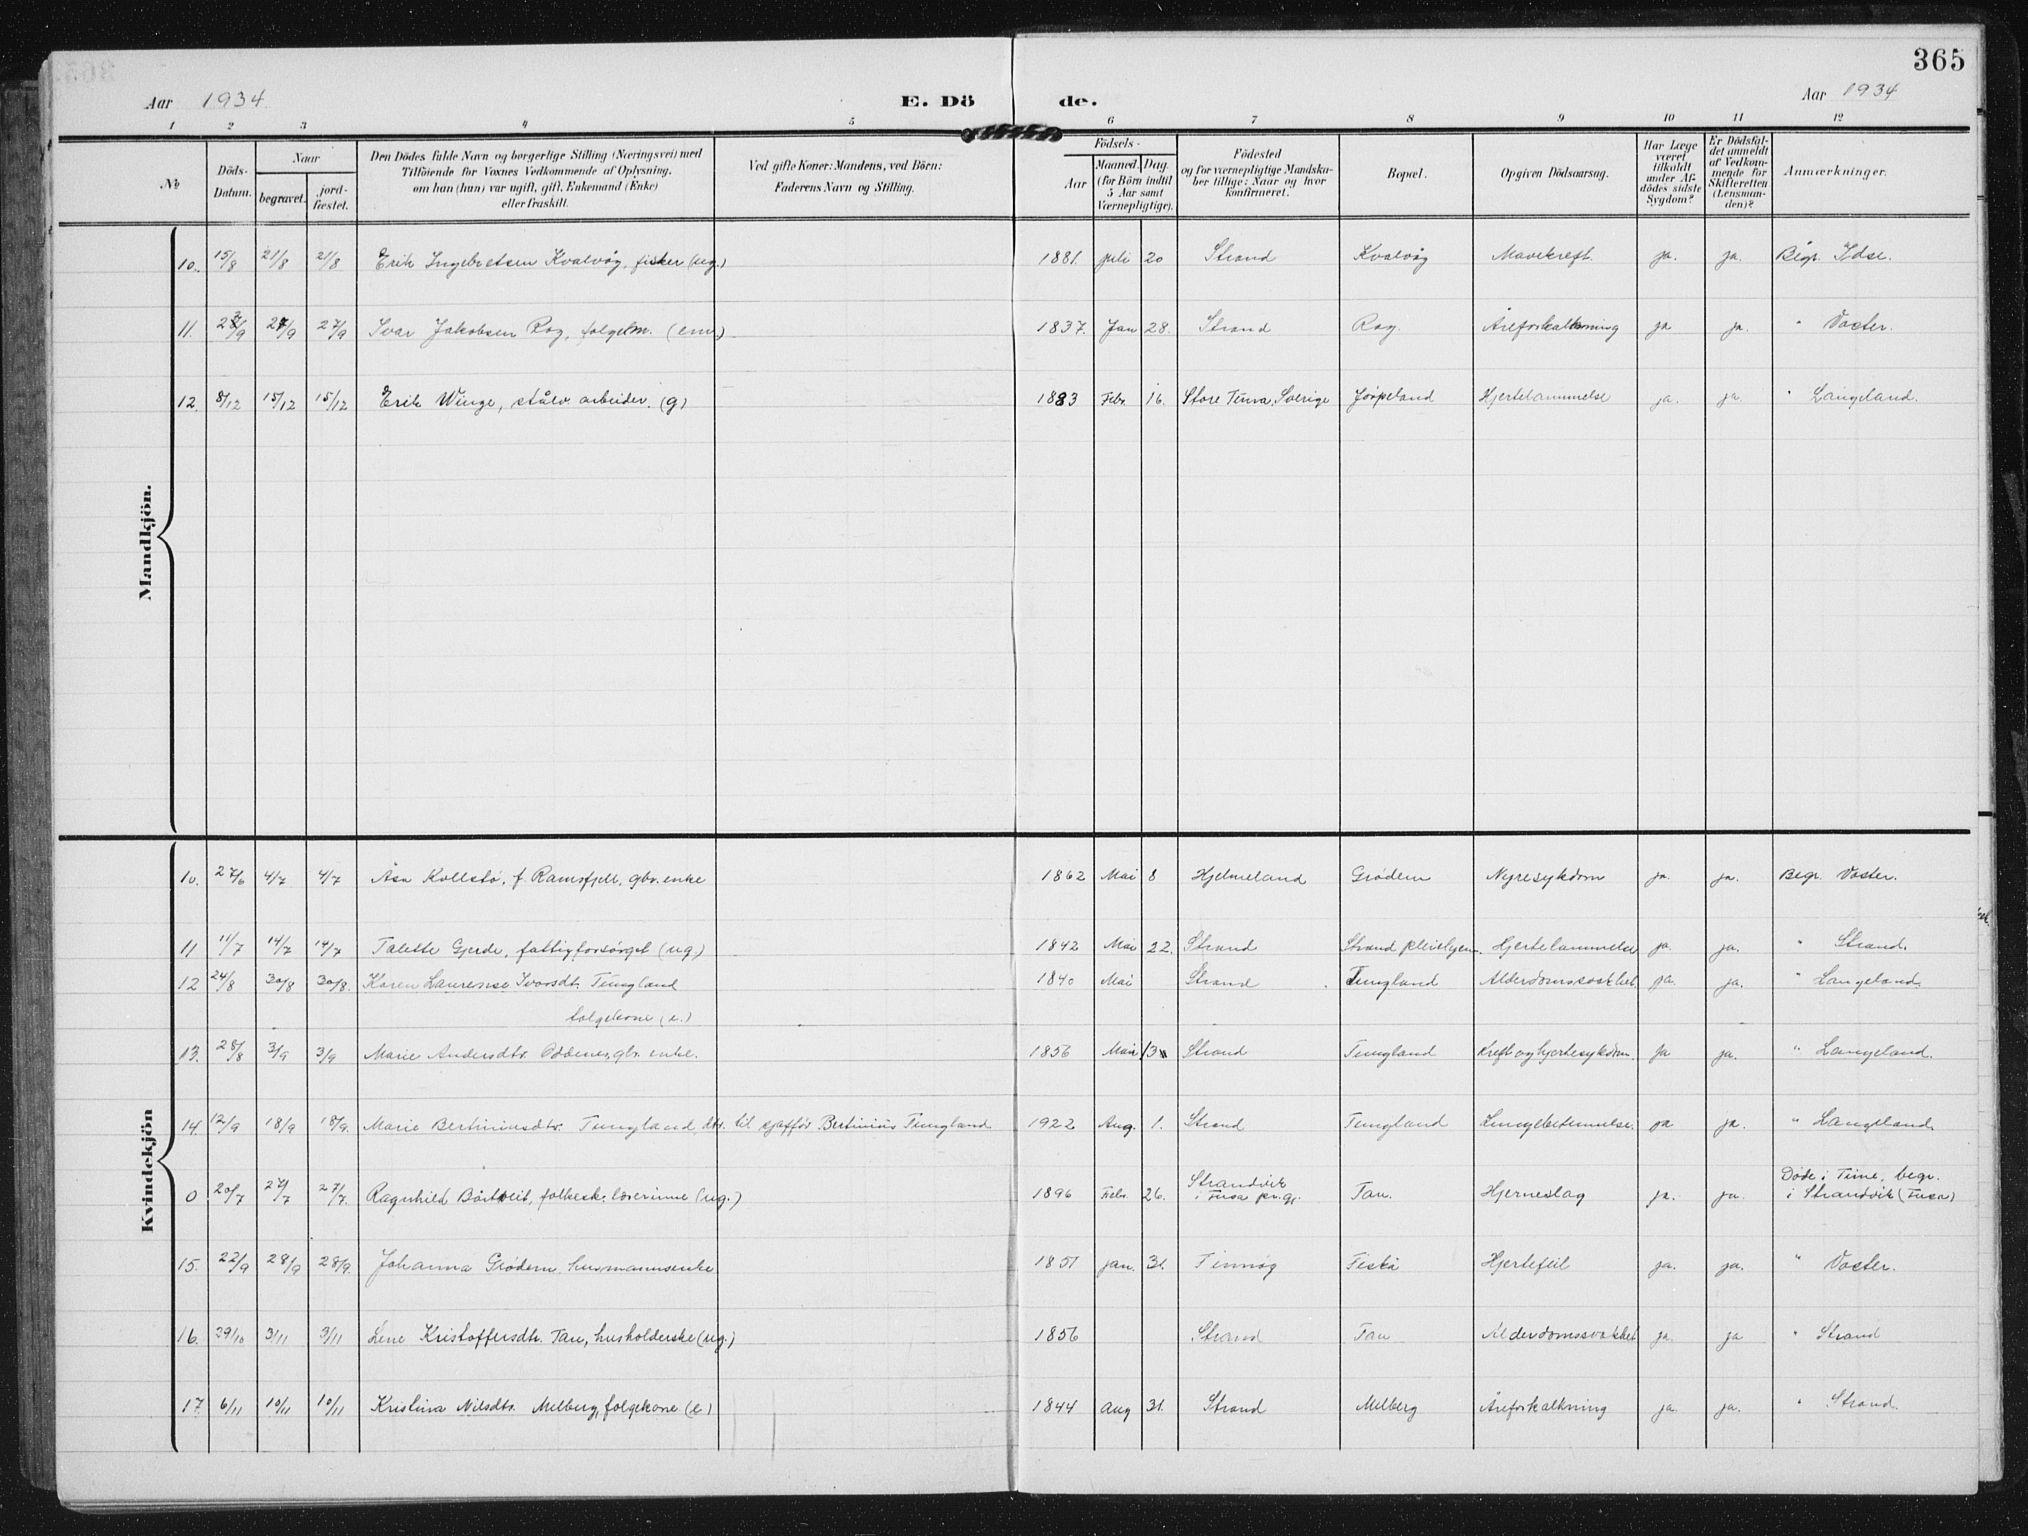 365
Aar 1934 E. Dö de. Aar 1934
1 2 3 4 5 6 7 8 9 10 11 12
No
Döds-
Datum.
Naar
begravet.
jord-
fæstet.
Den Dödes fulde Navn og borgerlige Stilling (Næringsvei) med
Tilföiende for Voxnes Vedkommende af Oplysning,
om han (hun) var ugift, gift, Enkemand (Enke)
eller fraskilt.
Ved gifte Koner: Mandens, ved Börn:
Faderens Navn og Stilling.
Födsels-
Aar
Maaned. Dag.
(for Börn indtil
5 Aar samt
Værnepligtige).
Födested
og for værnepligtige Mandska-
ber tillige: Naar og hvor
konfirmeret.
Bopæl.
Opgiven Dödsaarsag.
Har Læge
været
tilkaldt
under Af-
dödes sidste
Sygdom?
Er Dödsfal-
det anmeldt
af Vedkom-
mende for
Skifteretten
(Lensman-
den)?
Anmærkninger.
Mandkjön.
10. 15/8 21/8 21/8 Erik Ingebretsen Kvalvåg, fisker (ug.) 1881. juli 20 Strand Kvalvåg Mavekreft ja. ja. Begr. Idse.
11. 27/9 27/9 Ivar Jakobsen Rag, folgem. (enk.) 1837. Jan 28. Strand Rag. Åreforkalkning ja ja. " Vaster.
12. 8/12 15/12 15/12 Erik Winge, stålv. arbeider. (g) 1883 Febr. 16. Store Tuna, Sverige Jörpeland Hjertelammelse ja. ja. " Langeland.
Kvindekjön
10. 27/6 4/7 4/7 Åsa Kollstø, f. Ramsfjell, gbr. enke 1862 Mai 8 Hjelmeland Grødem Nyresykdom ja. ja. Begr. Vaster.
11 11/7 14/7 14/7 Talette Gjerde, fattigforsörget (ug.) 1842 Mai 22. Strand Strand pleiehjem. Hjertelammelse ja. ja. " Strand.
12 24/8 30/8 30/8. Karen Laurense Ivarsdt. Tungland 1840 Mai Strand Tungland Alderdomssvakhet. ja. ja. " Langeland.
folgekone (e.)
13. 28/8 3/9 3/9 Marie Andersdtr. Oddenes, gbr. enke. 1856 Mai 3 Strand Tungland Kreft og hjertesykdom. ja ja. " Langeland.
14. 12/9 18/9 18/9. Marie Bertiniusdtr. Tungland, dtr. til sjafför Bertinius Tungland 1922 Aug. 1. Strand Tungland Lungebetennelse. ja ja. " Langeland.
0 20/7 27/7 27/7. Ragnhild Börtveit, folkesk. lærerinne (ug.) 1896 Febr. 26. Strandvik
i Fusa pr.gj. Tau. Hjerneslag ja. ja. Döde i Time, begr.
i Strandvik (Fusa)
15. 22/9 28/9 28/9. Johanna Grødem, husmannsenke 1851 jan. 31. Finnøy Fiskå Hjertefeil ja. ja. " Vaster.
16. 29/10 3/11 3/11 Lene Kristoffersdtr. Tau, husholderske (ug.) 1856 Strand Tau Alderdomssvakhet ja. ja " Strand
17. 6/11 10/11 10/11 Kristina Nilsdtr. Melberg, folgekone (e) 1844 Aug 31. Strand Melberg Åreforkalkning ja. ja. " Strand.